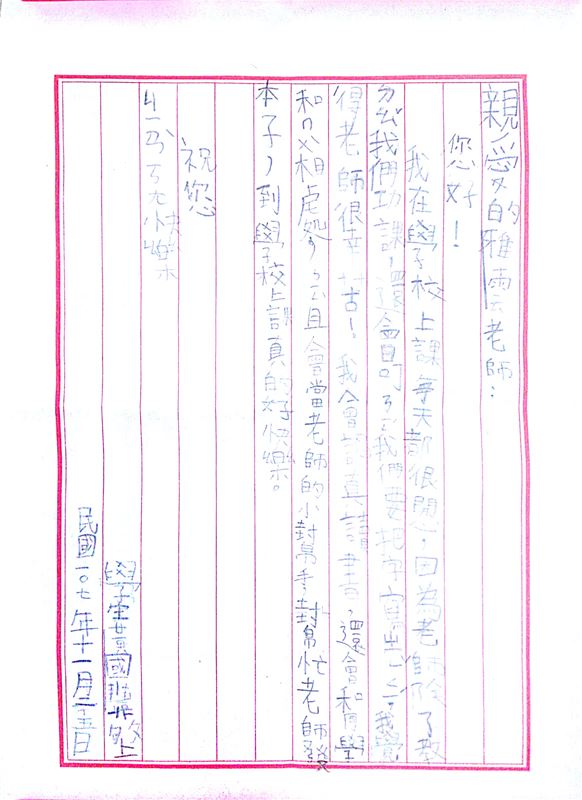 親愛的雅雲老師：
您好！
我在學校上課每天都很開心，因為老師除了教
我們功課，還會叮ㄋㄧㄥˊ我們要把字寫
得老師很幸苦！我會認真讀書，還會和同學
和ㄇㄨˋ相處，而且會當老師的小幫手，幫忙老師發
本子，到學校上課真的好快樂。
祝您
ㄐㄧㄢˋㄎㄤ快樂
學生黃國
民國一０七年十一月二十五日